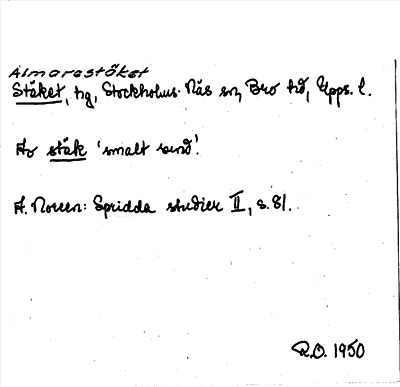 Almarestäket
Stäket, hg, Stockholms-Näs sn, Bro hd, Upps. l.
Av stäk 'smalt sund'.
A. Noreen: Spridda studier II, s. 81.
R.O. 1950